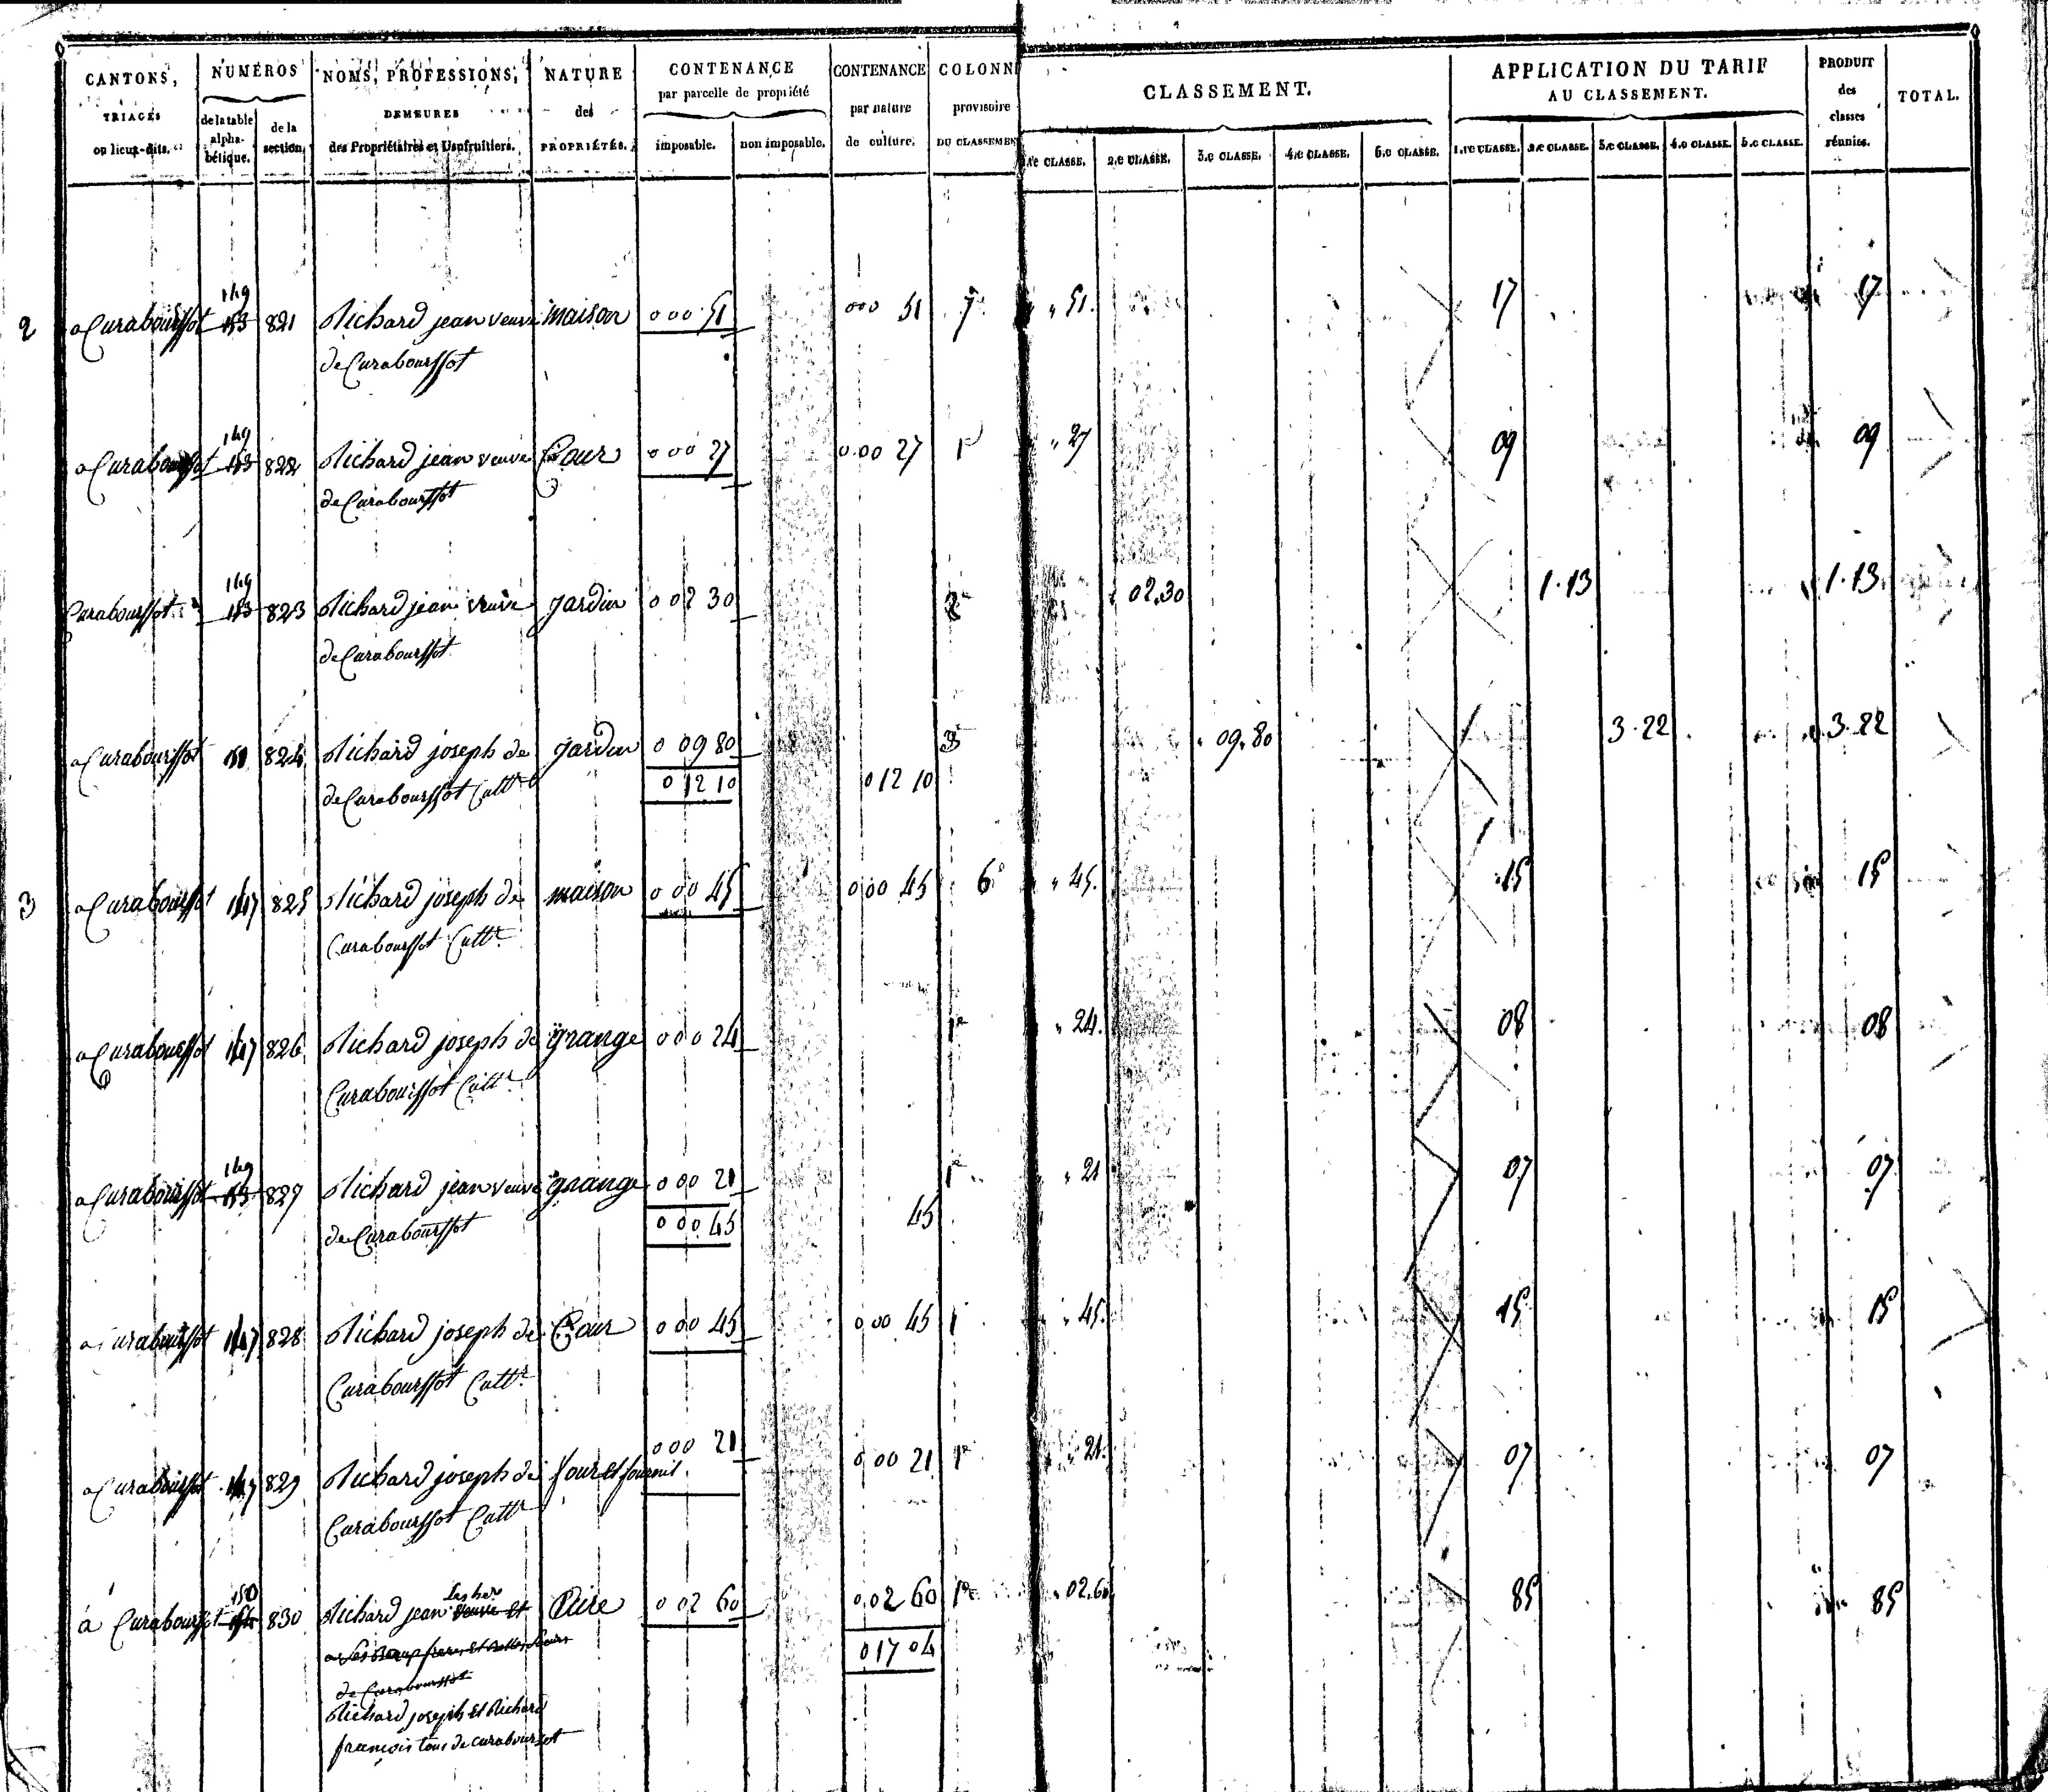 CANTONS, TRIAGES ou lieux-dits.
NUMÉROS de la table alphabétique. de la section.
NOMS, PROFESSIONS, DEMEURES des Propriétaires et Usufruitiers.
NATURE des PROPRIÉTÉS.
CONTENANCE par parcelle de propriété imposable. non imposable.
CONTENANCE par nature de culture.
COLONN provisoire DU CLASSEMEN
CLASSEMENT.
1.re CLASSE. 2.e CLASSE. 3.e CLASSE. 4.e CLASSE. 5.e CLASSE.
APPLICATION DU TARIF AU CLASSEMENT.
1.re CLASSE. 2.e CLASSE. 3.e CLASSE. 4.e CLASSE. 5.e CLASSE.
PRODUIT des classes réunies.
TOTAL.
149
2 a Curabourssot 153 821 Richard jean veuve maison 0 00 51 000 51 7 " 51. 17 17
de Curabourssot
149
a Curabourssot 153 822 Richard jean veuve Cour 0 00 27 0.00 27 1e " 27 09 09
de Curabourssot
149
Curabourssot 153 823 Richard jean veuve jardin 0 02 30 2 02.30 1.13 1.13
de Curabourssot
a Curabourssot 824 Richard joseph de jardin 0 09 80 3 09.80 3.22 3.22
de Curabourssot Cultr 0 12 10 0 12 10
3 a Curabourssot 147 825 Richard joseph de maison 0 00 45 0.00 45 6e " 45. 15 15
Curabourssot Cultr
a Curabourssot 147 826 Richard joseph de grange 0 00 24 1e " 24. 08 08
Curabourssot Cultr
149
a Curabourssot 153 827 Richard jean veuve grange 0 00 21 1e " 21 07 07
de Curabourssot 0 00 45 45
a Curabourssot 147 828 Richard joseph de Cour 0 00 45 0.00 45 1 " 45. 15 15
Curabourssot Cultr
a Curabourssot 147 829 Richard joseph de four et fournil 0 00 21 0 00 21 1e " 21. 07 07
Curabourssot Cultr
150 Les her
à Curabourssot 154 830 Richard jean veuve et Aire 0 02 60 0.02 60 1e " 02.60 85 85
Ses Beaux freres Et Belles Soeurs 0 17 04
de Curabourssot
Richard joseph et Richard
françois tous de curaboursot